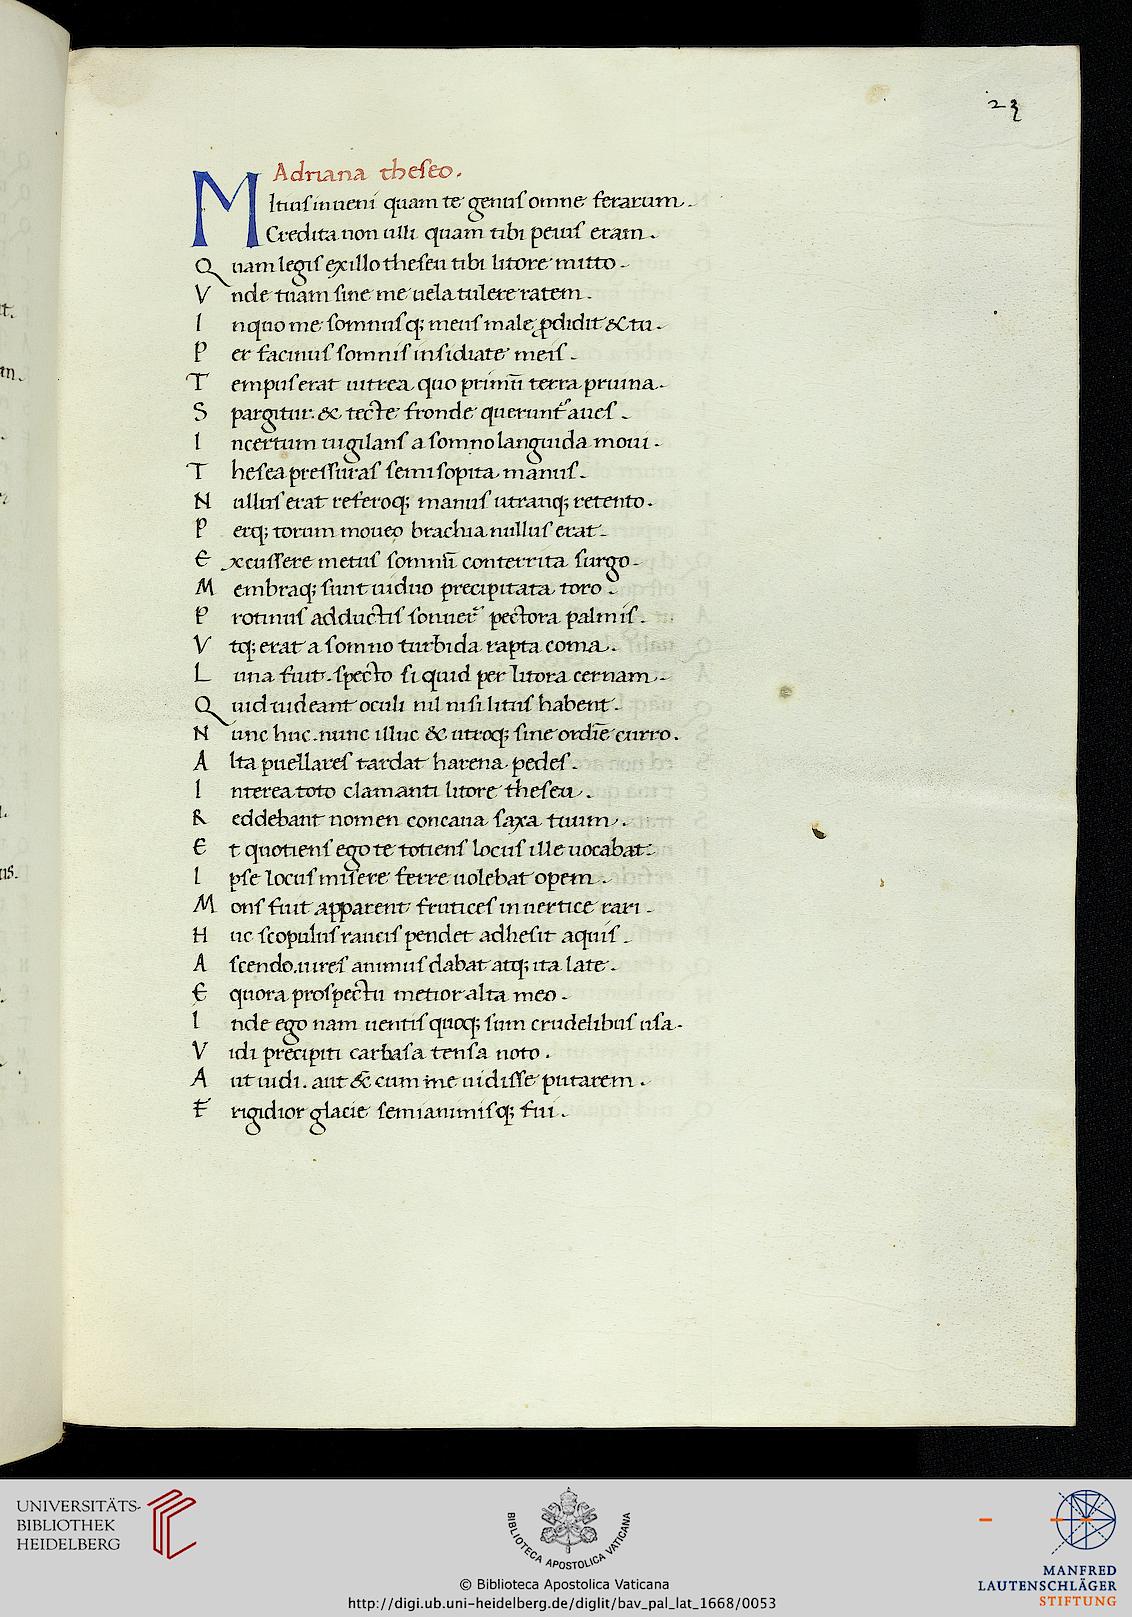 23
Adriana theseo.
Mitius inueni quam te genus omne ferarum.
Credita non ulli quam tibi peius eram.
Quam legis ex illo theseu tibi litore mitto.
Vnde tuam sine me uela tulere ratem.
In quo me somnusq; meus male ꝓdidit & tu.
Per facinus somnis insidiate meis.
Tempus erat uitrea quo primū terra pruina.
Spargitur. & tecte fronde querunt᷑ aues.
Incertum uigilans a somno languida moui.
Thesea pressuras semisopita manus.
Nullus erat referoq; manus utranq; retento.
Perq; torum moueo brachia nullus erat.
Excussere metus somnū conterrita surgo.
Membraq; sunt uiduo precipitata toro.
Protinus adductis sonuer̄ pectora palmis.
Vtq; erat a somno turbida rapta coma.
Luna fuit. specto si quid per litora cernam.
Quid uideant oculi nil nisi litus habent.
Nunc huc. nunc illuc & utroq; sine ordīe curro.
Alta puellares tardat harena pedes.
Interea toto clamanti litore theseu.
Reddebant nomen concaua saxa tuum.
Et quotiens ego te totiens locus ille uocabat.
Ipse locus misere ferre uolebat opem.
Mons fuit apparent frutices in uertice rari.
Huc scopulus raucis pendet adhesit aquis.
Ascendo. uires animus dabat atq; ita late.
Equora prospectu metior alta meo.
Inde ego nam uentis quoq; sum crudelibus usa.
Vidi precipiti carbasa tensa noto.
Aut uidi. aut & cum me uidisse putarem.
Frigidior glacie semianimisq; fui.
UNIVERSITÄTS-
BIBLIOTHEK
HEIDELBERG
BIBLIOTECA APOSTOLICA VATICANA
MANFRED
LAUTENSCHLÄGER
STIFTUNG
© Biblioteca Apostolica Vaticana
http://digi.ub.uni-heidelberg.de/diglit/bav_pal_lat_1668/0053